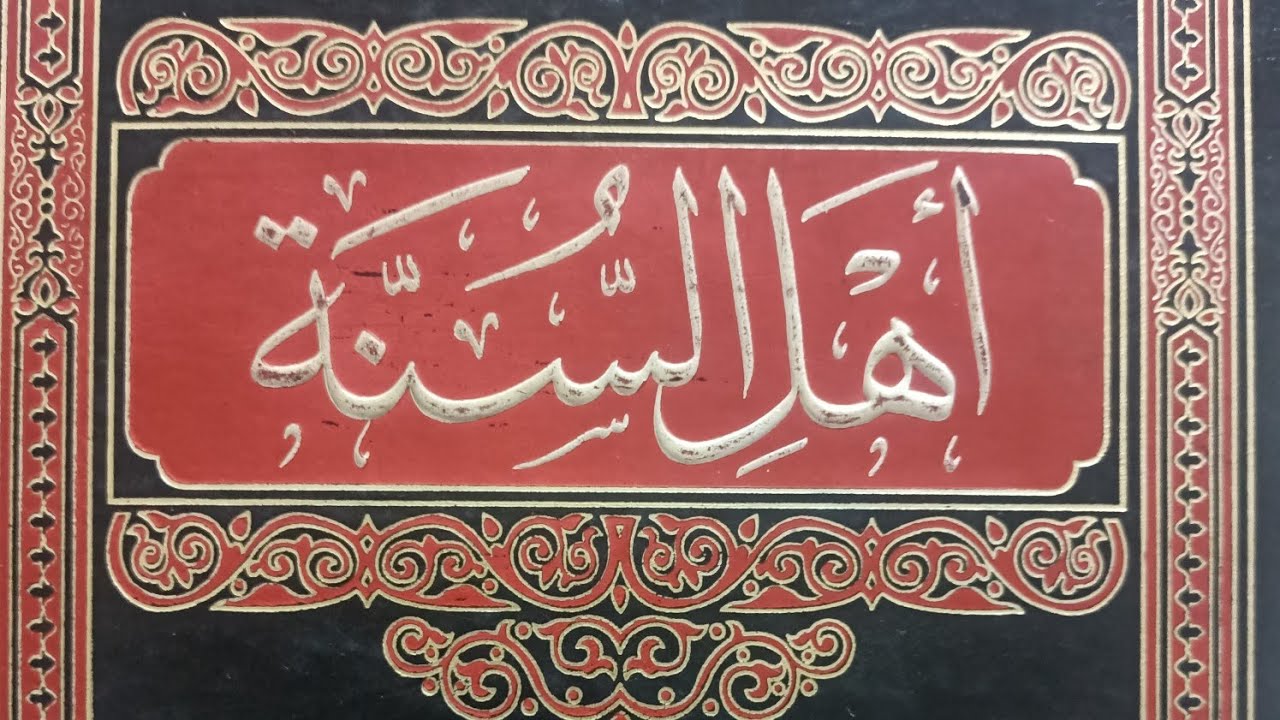 أَهْلِ السُّنَّة